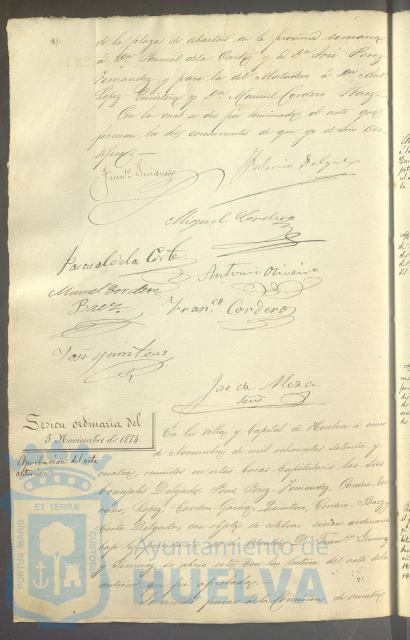 de la plaza de abastos en la proxima semana
á Dn. Pascual de la Corte y á Dn. José Perez
Fernandez y para la del Matadero á Dn. Ant.
Lopez Quintero y Dn. Manuel Cordero Baez.
Con lo cual se dió por terminado el acto que
firman los Sres concurrentes de que yo el Srio cer-
tifico.
Franco. Jimenez
Miguel Cordero
Pascual de la Corte
Antonio Oliveira
Manuel Cordero
Baez
Franco. Cordero
José Quintero
José de Mora
Srio
Sesion ordinaria del
5 Noviembre de 1874.
Aprobacion del acta
anterior
En la Villa y Capital de Huelva á cinco
de Noviembre de mil ochocientos setenta y
cuatro, reunidos en estas Casas Capitulares los Sres
Concejales Delgado, Perez, Fernandez, Cordero
Lopez, Cordero Garcia, Quintero, Cordero Baez,
Corte Delgado, con objeto de celebrar sesion ordinaria
bajo la Alcalde Dn. Franco. Jimenez
y Jimenez, se abrió esta con la lectura del acta de la
anterior que fué aprobada.
la Comision de
PORTUS MARIS ET TERRÆ CUSTODIA
Ayuntamiento de
HUELVA